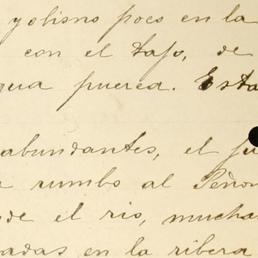 y olismo poco en la
con el Tajo, de
gua puerca. Esta
abundantes, el
rumbo al Peñon
de el rio, mucha
adas en la ribera